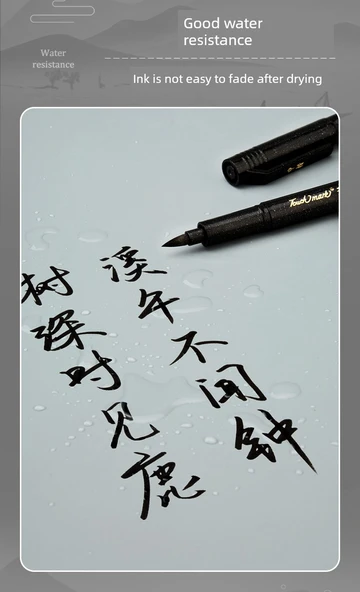 Good water
resistance
Water
resistance
Ink is not easy to fade after drying
Touch mark
树深时见鹿
溪午不闻钟